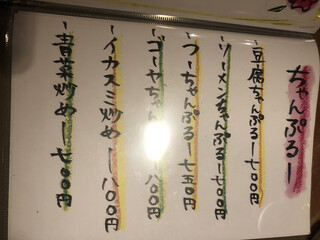 ちゃんぷるー
-豆腐ちゃんぷるー七〇〇円
-ソーメンちゃんぷるー七〇〇円
-フーちゃんぷるー七五〇円
-ゴーヤちゃんぷるー八〇〇円
-イカスミ炒めー八〇〇円
-青菜炒めー七〇〇円